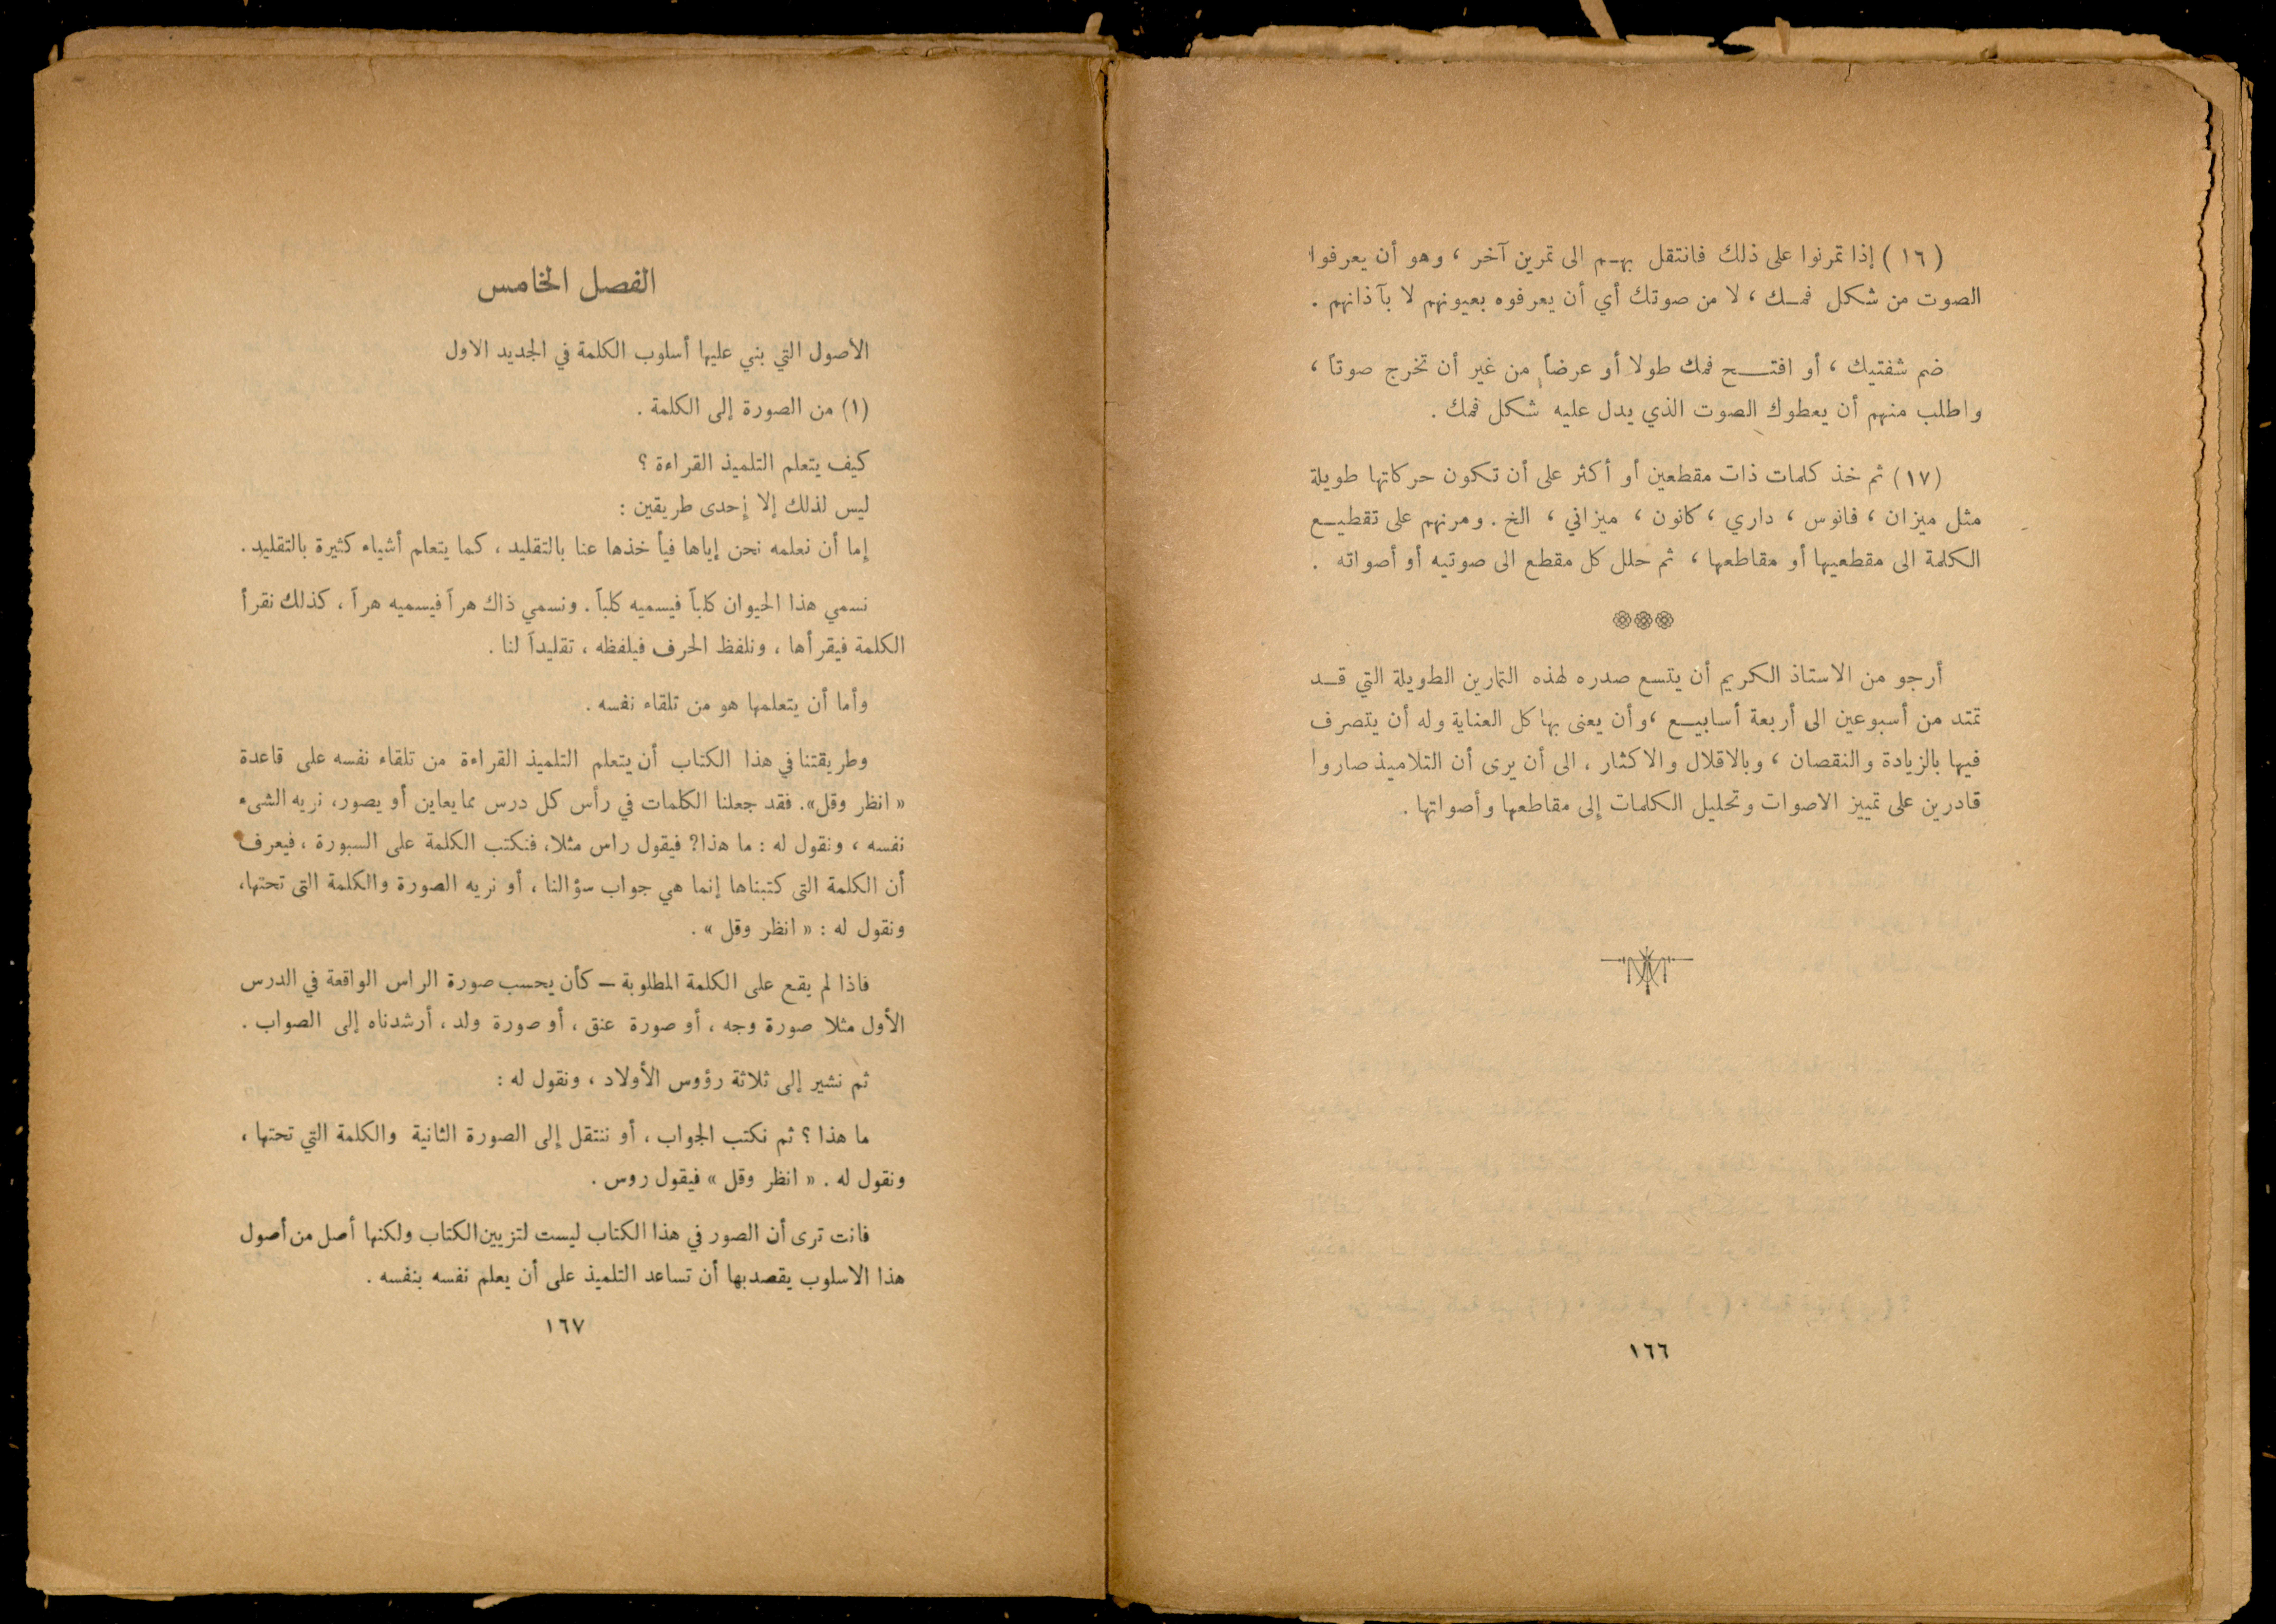 (١٦) إذا تمرنوا على ذلك فانتقل بهـم الى تمرين آخر ، وهو أن يعرفوا
الصوت من شكل فمـك ، لا من صوتك أي أن يعرفوه بعيونهم لا بآذانهم .
ضم شفتيك ، أو افتـــح فمك طولا أو عرضاً من غير أن تخرج صوتاً ،
واطلب منهم أن يعطوك الصوت الذي يدل عليه شكل فمك .
(١٧) ثم خذ كلمات ذات مقطعين أو أكثر على أن تكون حركاتها طويلة
مثل ميزان ، فانوس ، داري ، كانون ، ميزاني ، الخ . ومرنهم على تقطيـع
الكلمة الى مقطعيها أو مقاطعها ، ثم حلل كل مقطع الى صوتيه أو أصواته .
أرجو من الاستاذ الكريم أن يتسع صدره لهذه التمارين الطويلة التي قـد
تمتد من أسبوعين الى أربعة أسابيـع ، وأن يعنى بها كل العناية وله أن يتصرف
فيها بالزيادة والنقصان ، وبالاقلال والاكثار ، الى أن يرى أن التلاميذ صاروا
قادرين على تمييز الاصوات وتحليل الكلمات إلى مقاطعها وأصواتها .
١٦٦
الفصل الخامس
الأصول التي بني عليها أسلوب الكلمة في الجديد الاول
(١) من الصورة إلى الكلمة .
كيف يتعلم التلميذ القراءة ؟
ليس لذلك إلا إحدى طريقين :
إما أن نعلمه نحن إياها فيأخذها عنا بالتقليد ، كما يتعلم أشياء كثيرة بالتقليد .
نسمي هذا الحيوان كلباً فيسميه كلباً . ونسمي ذاك هراً فيسميه هراً ، كذلك نقرأ
الكلمة فيقرأها ، ونلفظ الحرف فيلفظه ، تقليداً لنا .
وأما أن يتعلمها هو من تلقاء نفسه .
وطريقتنا في هذا الكتاب أن يتعلم التلميذ القراءة من تلقاء نفسه على قاعدة
« انظر وقل» . فقد جعلنا الكلمات في رأس كل درس مما يعاين أو يصور ، نريه الشىء
نفسه ، ونقول له : ما هذا؟ فيقول راس مثلا ، فنكتب الكلمة على السبورة ، فيعرف
أن الكلمة التى كتبناها إنما هي جواب سؤالنا ، أو نريه الصورة والكلمة التى تحتها ،
ونقول له : « انظر وقل » .
فاذا لم يقع على الكلمة المطلوبة — كأن يحسب صورة الراس الواقعة في الدرس
الأول مثلا صورة وجه ، أو صورة عنق ، أو صورة ولد ، أرشدناه إلى الصواب .
ثم نشير إلى ثلاثة رؤوس الأولاد ، ونقول له :
ما هذا ؟ ثم نكتب الجواب ، أو ننتقل إلى الصورة الثانية والكلمة التي تحتها ،
ونقول له . « انظر وقل » فيقول روس .
فانت ترى أن الصور في هذا الكتاب ليست لتزيين الكتاب ولكنها أصل من أصول
هذا الاسلوب يقصد بها أن تساعد التلميذ على أن يعلم نفسه بنفسه .
١٦٧